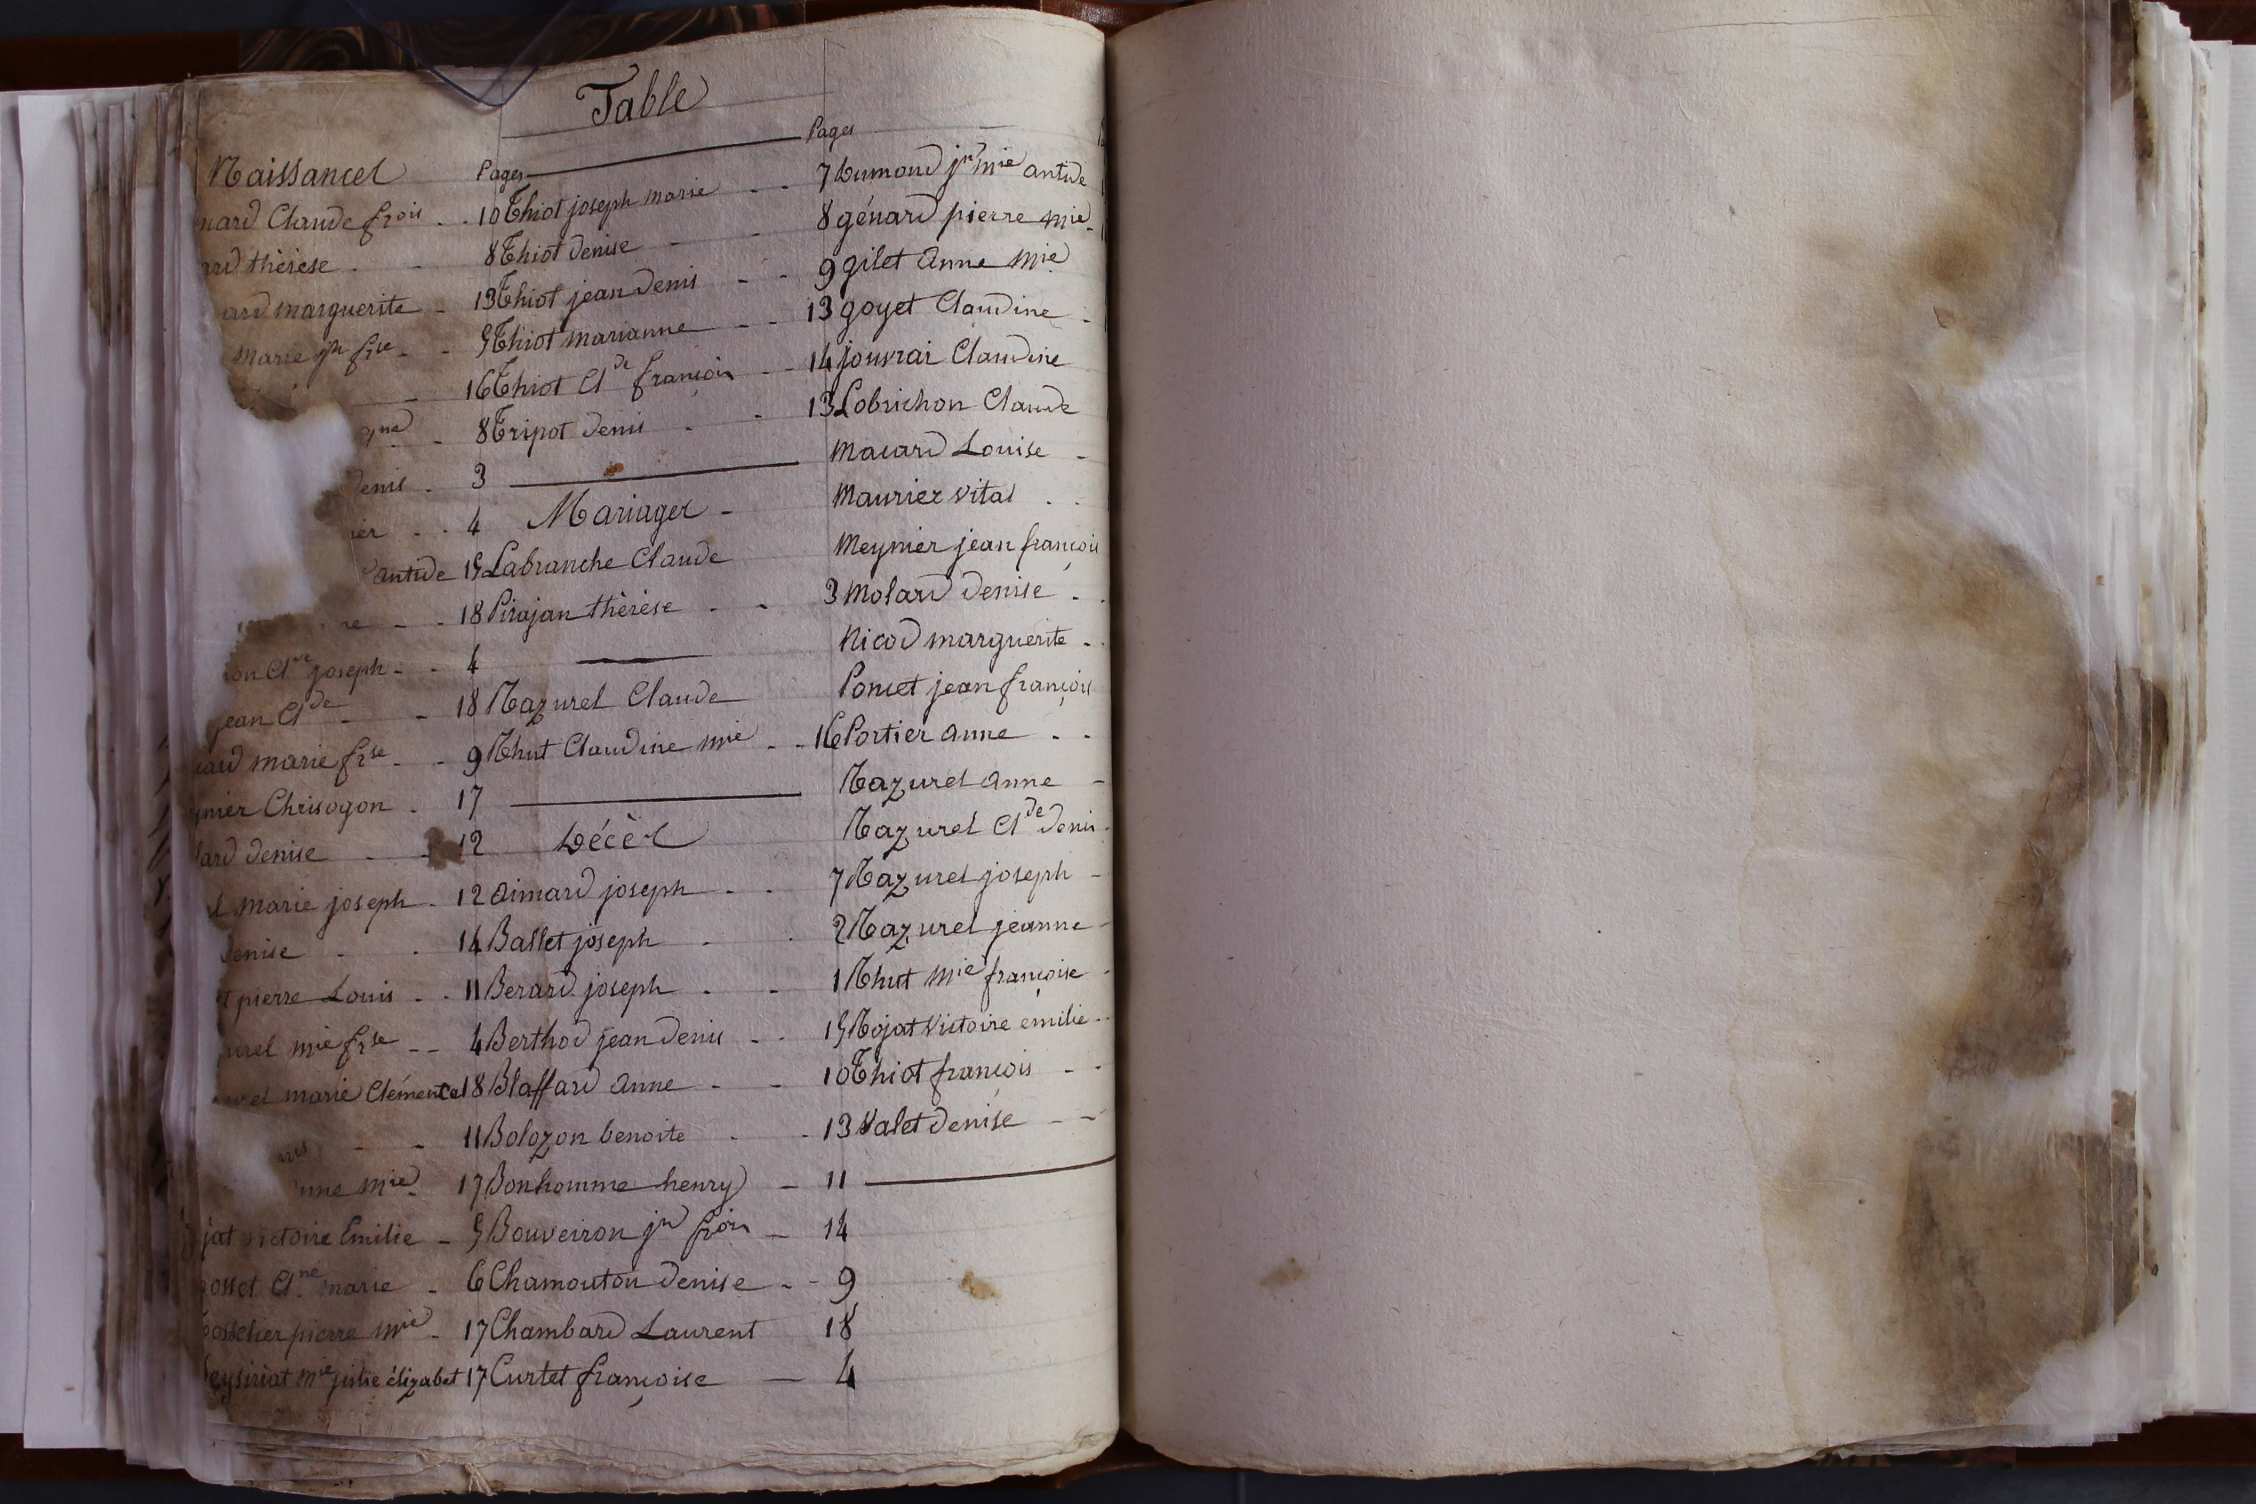 Table
Naissances Pages
nard Claude frois 10
ard thérèse 8
ard marguerite 13
marie jph frse 5
16
gne 8
denis 3
ier 4
antide 15
re 18
on Cl joseph 4
jean Cl.de 18
ard marie frse 9
nier Chrisogon 17
lard denise 12
el marie joseph 12
denise 14
t pierre Louis 11
urel mie frse 4
urel marie Clémence 18
11
nne mie 17
jat victoire Emilie 5
osset Cl.ne marie 6
osselier pierre mie 17
eysiriat mie julie élizabet 17
Pages
Thiot joseph marie 7
Thiot denise 8
Thiot jean denis 9
Thiot marianne 13
Thiot Cl.de françois 14
Tripot denis 13
Mariages
Labranche Claude
Pirajan thérèse 3
Razurel Claude
Rhut Claudine mie 16
Décès
aimard joseph 7
Ballet joseph 2
Berard joseph 1
Berthod jean denis 15
Blaffard anne 10
Bolozon benoite 13
Bonhomme henry 11
Bouveiron jn frois 14
Chamouton denise 9
Chambard Laurent 18
Curtet françoise 4
Dumond jn mie antide
génard pierre mie
gilet anne mie
goyet Claudine
jouvrai Claudine
Lobrichon Claude
Macard Louise
Maurier vital
Meynier jean françois
Molard denise
Nicod marguerite
Poncet jean françois
Portier anne
Razurel anne
Razurel Cl.de denis
Razurel joseph
Razurel jeanne
Rhut mie françoise
Rojat victoire emilie
Thiot françois
Valet denise